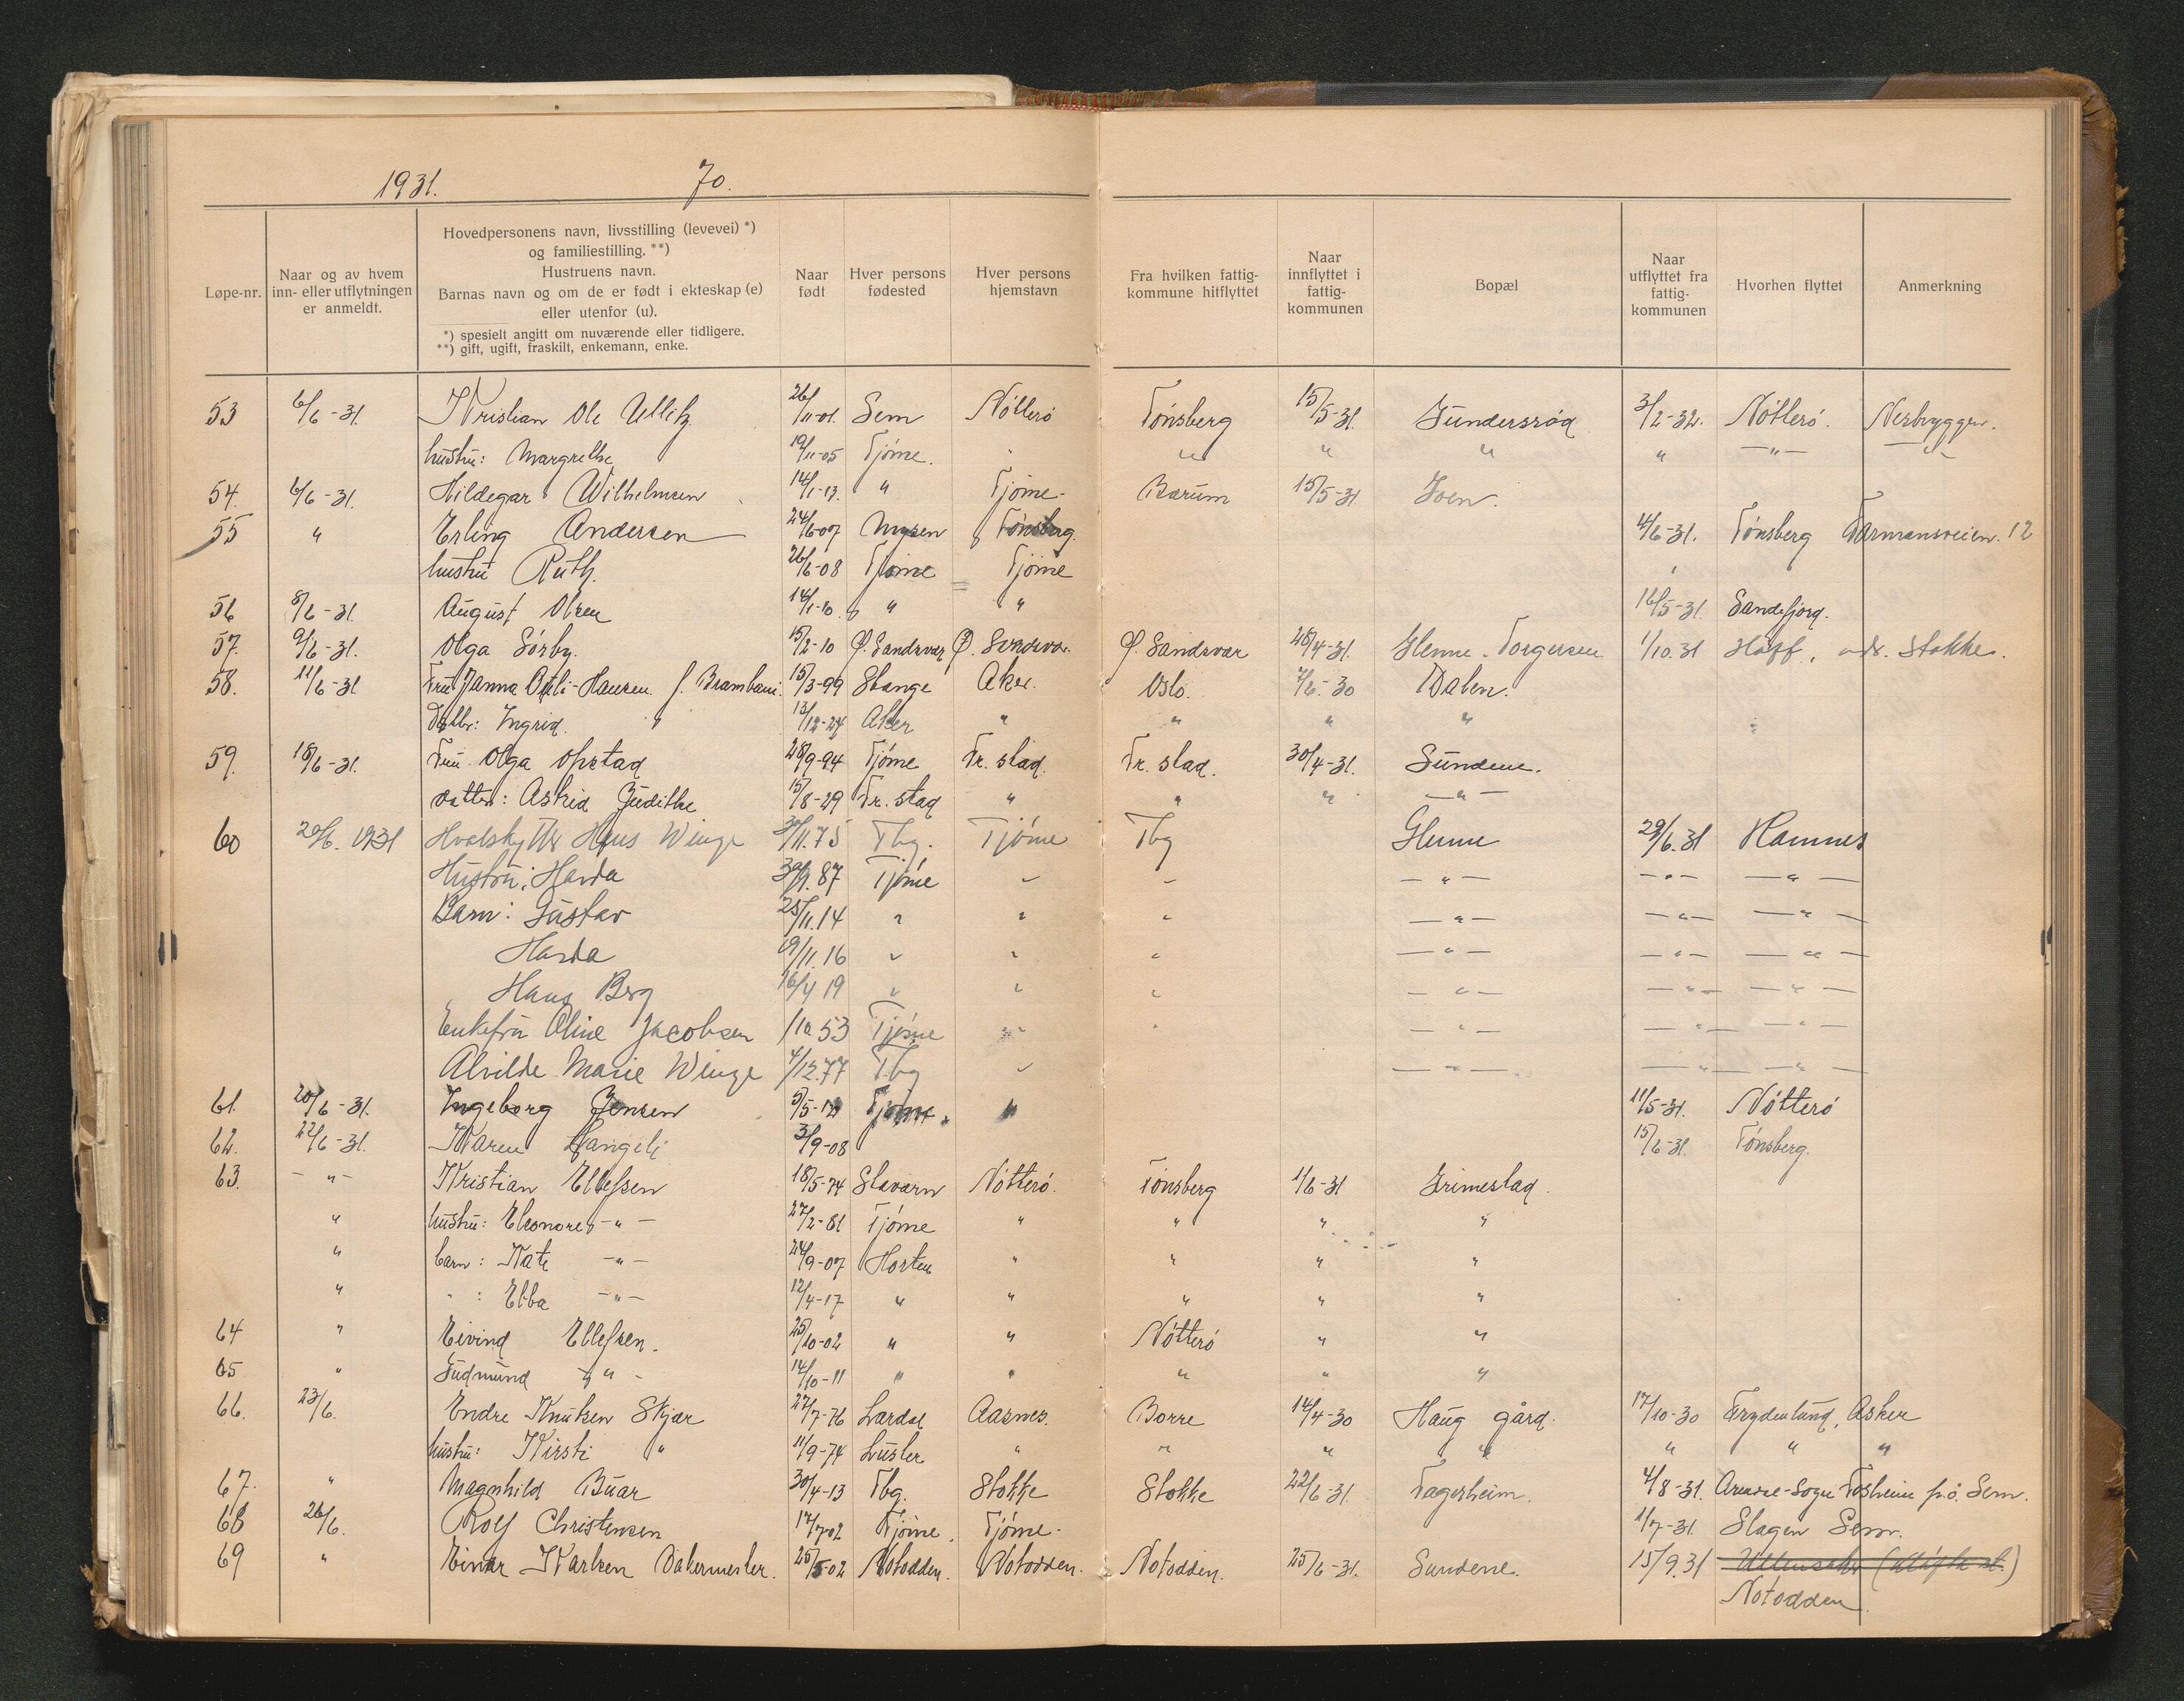 1931. 70.
Løpe-nr. Naar og av hvem inn- eller utflytningen er anmeldt. Hovedpersonens navn, livsstilling (levevei) *) og familiestilling. **) Hustruens navn. Barnas navn og om de er født i ekteskap (e) eller utenfor (u). *) spesielt angitt om nuværende eller tidligere. **) gift, ugift, fraskilt, enkemann, enke. Naar født Hver persons fødested Hver persons hjemstavn Fra hvilken fattig-kommune hitflyttet Naar innflyttet i fattig-kommunen Bopæl Naar utflyttet fra fattig-kommunen Hvorhen flyttet Anmerkning
53 6/6-31. Kristian Ole Ullitz 26/11-01. Sem Nötterö Tönsberg 15/5-31. Gundersröd 3/2-32. Nötterö. Nesbryggen.
hustru: Margrethe 19/11-05 Tjöme. " " " " —"—
54. 6/6-31. Hildegar Wilhelmsen 14/1-13. " Tjöme- Bærum 15/5-31.
55 " Erling Andersen 24/6-07 Mysen Tönsberg. 4/6-31. Tönsberg Farmansveien. 12
hustru Ruth. 26/6-08 Tjöme Tjöme
56 8/6-31. August Olsen 14/1-10. " " 16/5-31 Sandefjord.
57. 9/6-31. Olga Sörby. 15/2-10 Ø. Sandsvær Ø. Sandsvær Ø. Sandsvær 28/4-31. Glenne Torgersen 1/10.31 Hoff, adr. Stokke.
58. 11/6-31 Fru Janna -Hansen f. 15/3-99 Stange Aker. Oslo. 7/6-30 Dalen.
datter: Ingrid. " 13/12-24 Aker " " " "
59. 18/6-31. Fru Olga Opstad 28/9-94 Tjöme Fr. stad. Fr. stad. 30/4-31. Sundene.
datter: Astrid Judithe 15/8-29 Fr. stad " " " —"—
60 20/6. 1931 Hvalsk Hans Winge 30/11.75 Tbg. Tjöme Tbg Glenne 29/6.31 Hamnes
Hustru: Harda 30/9.87 Tjöme " " —"— —"— —"—
Barn: Gustav 25/11.14 " " " —"— —"— —"—
Harda 19/11.16 " " " —"— —"— —"—
Hans Berg 16/4 19 " " " —"— —"— —"—
Enkefru Oline Jacobsen /10.53 Tjöme " " —"— —"— —"—
Alvilde Marie Winge 4/12.77 Tbg " —"— —"— —"—
61. 20/6-31. Ingeborg Jensen Tjöme " 11/5-31. Nötterö
62. 22/6-31. Karen 3/9-08 15/6-31. Tönsberg.
63. -"- Kristian Ellefsen 18/5-74 Staværn Nötterö. Tönsberg 1/6-31 Grimestad.
" hustru: Eleonore -"- 27/2-81 Tjöme " " " "
" barn: Kate -"- 24/9-07 Horten " " " "
" " : Ebba -"- 12/4-17 " " " " "
64 " Eivind Ellefsen. 25/10-02 " " Nötterö " "
65 " Gudmund -"- 14/10-11 " " " " "
66. 23/6. Endre Knutsen Skjær 27/7-76 Lærdal Aasnes. Borre 14/4-30 Haug gård. 17/10-30 Frydenlund, Asker
hustru: Kirsti " 11/9-74 Luster " " " " " " "
67. " Magnhild Buar 30/4-13 Tbg. Stokke Stokke 22/6-31. Fagerheim. 4/8-31. Arendre-Sogn Fosheim p.å. Sem.
68 26/6. Rolf Christensen 17/7-02 Tjöme. Tjöme. 1/7-31. Slagen Sem.
69 " Einar Karlsen Bakermester. 25/5-02 Notodden. Notodden. Notodden. 25/6-31. Sundene. 15/9.31
Notodden